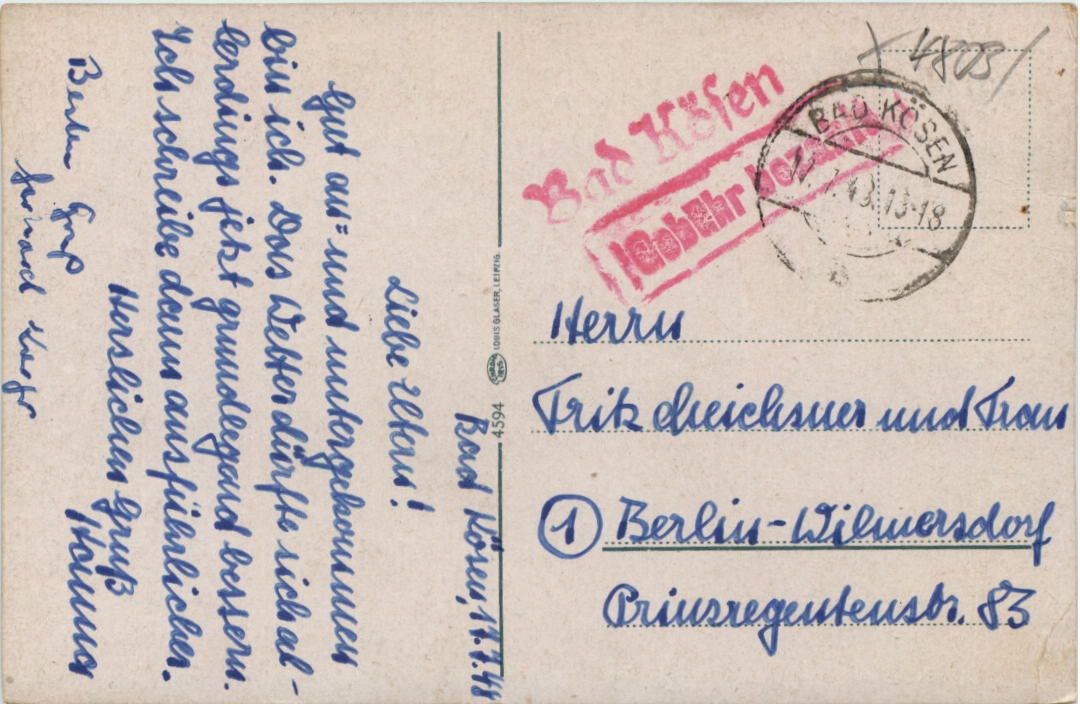 Bad Kösen, 11.7.48
Liebe Eltern!
Gut an= und untergekommen
bin ich. Das Wetter dürfte sich al-
lerdings jetzt grundlegend bessern.
Ich schreibe dann ausführlicher.
Herzlichen Gruß
Besten Gruß
4594
LOUIS GLASER, LEIPZIG.
Bad Kösen
Gebühr bezahlt
BAD KÖSEN
7.48.13-18
Herrn
Fritz Meichsner und Frau
1 Berlin-Wilmersdorf
Prinzregentenstr. 83